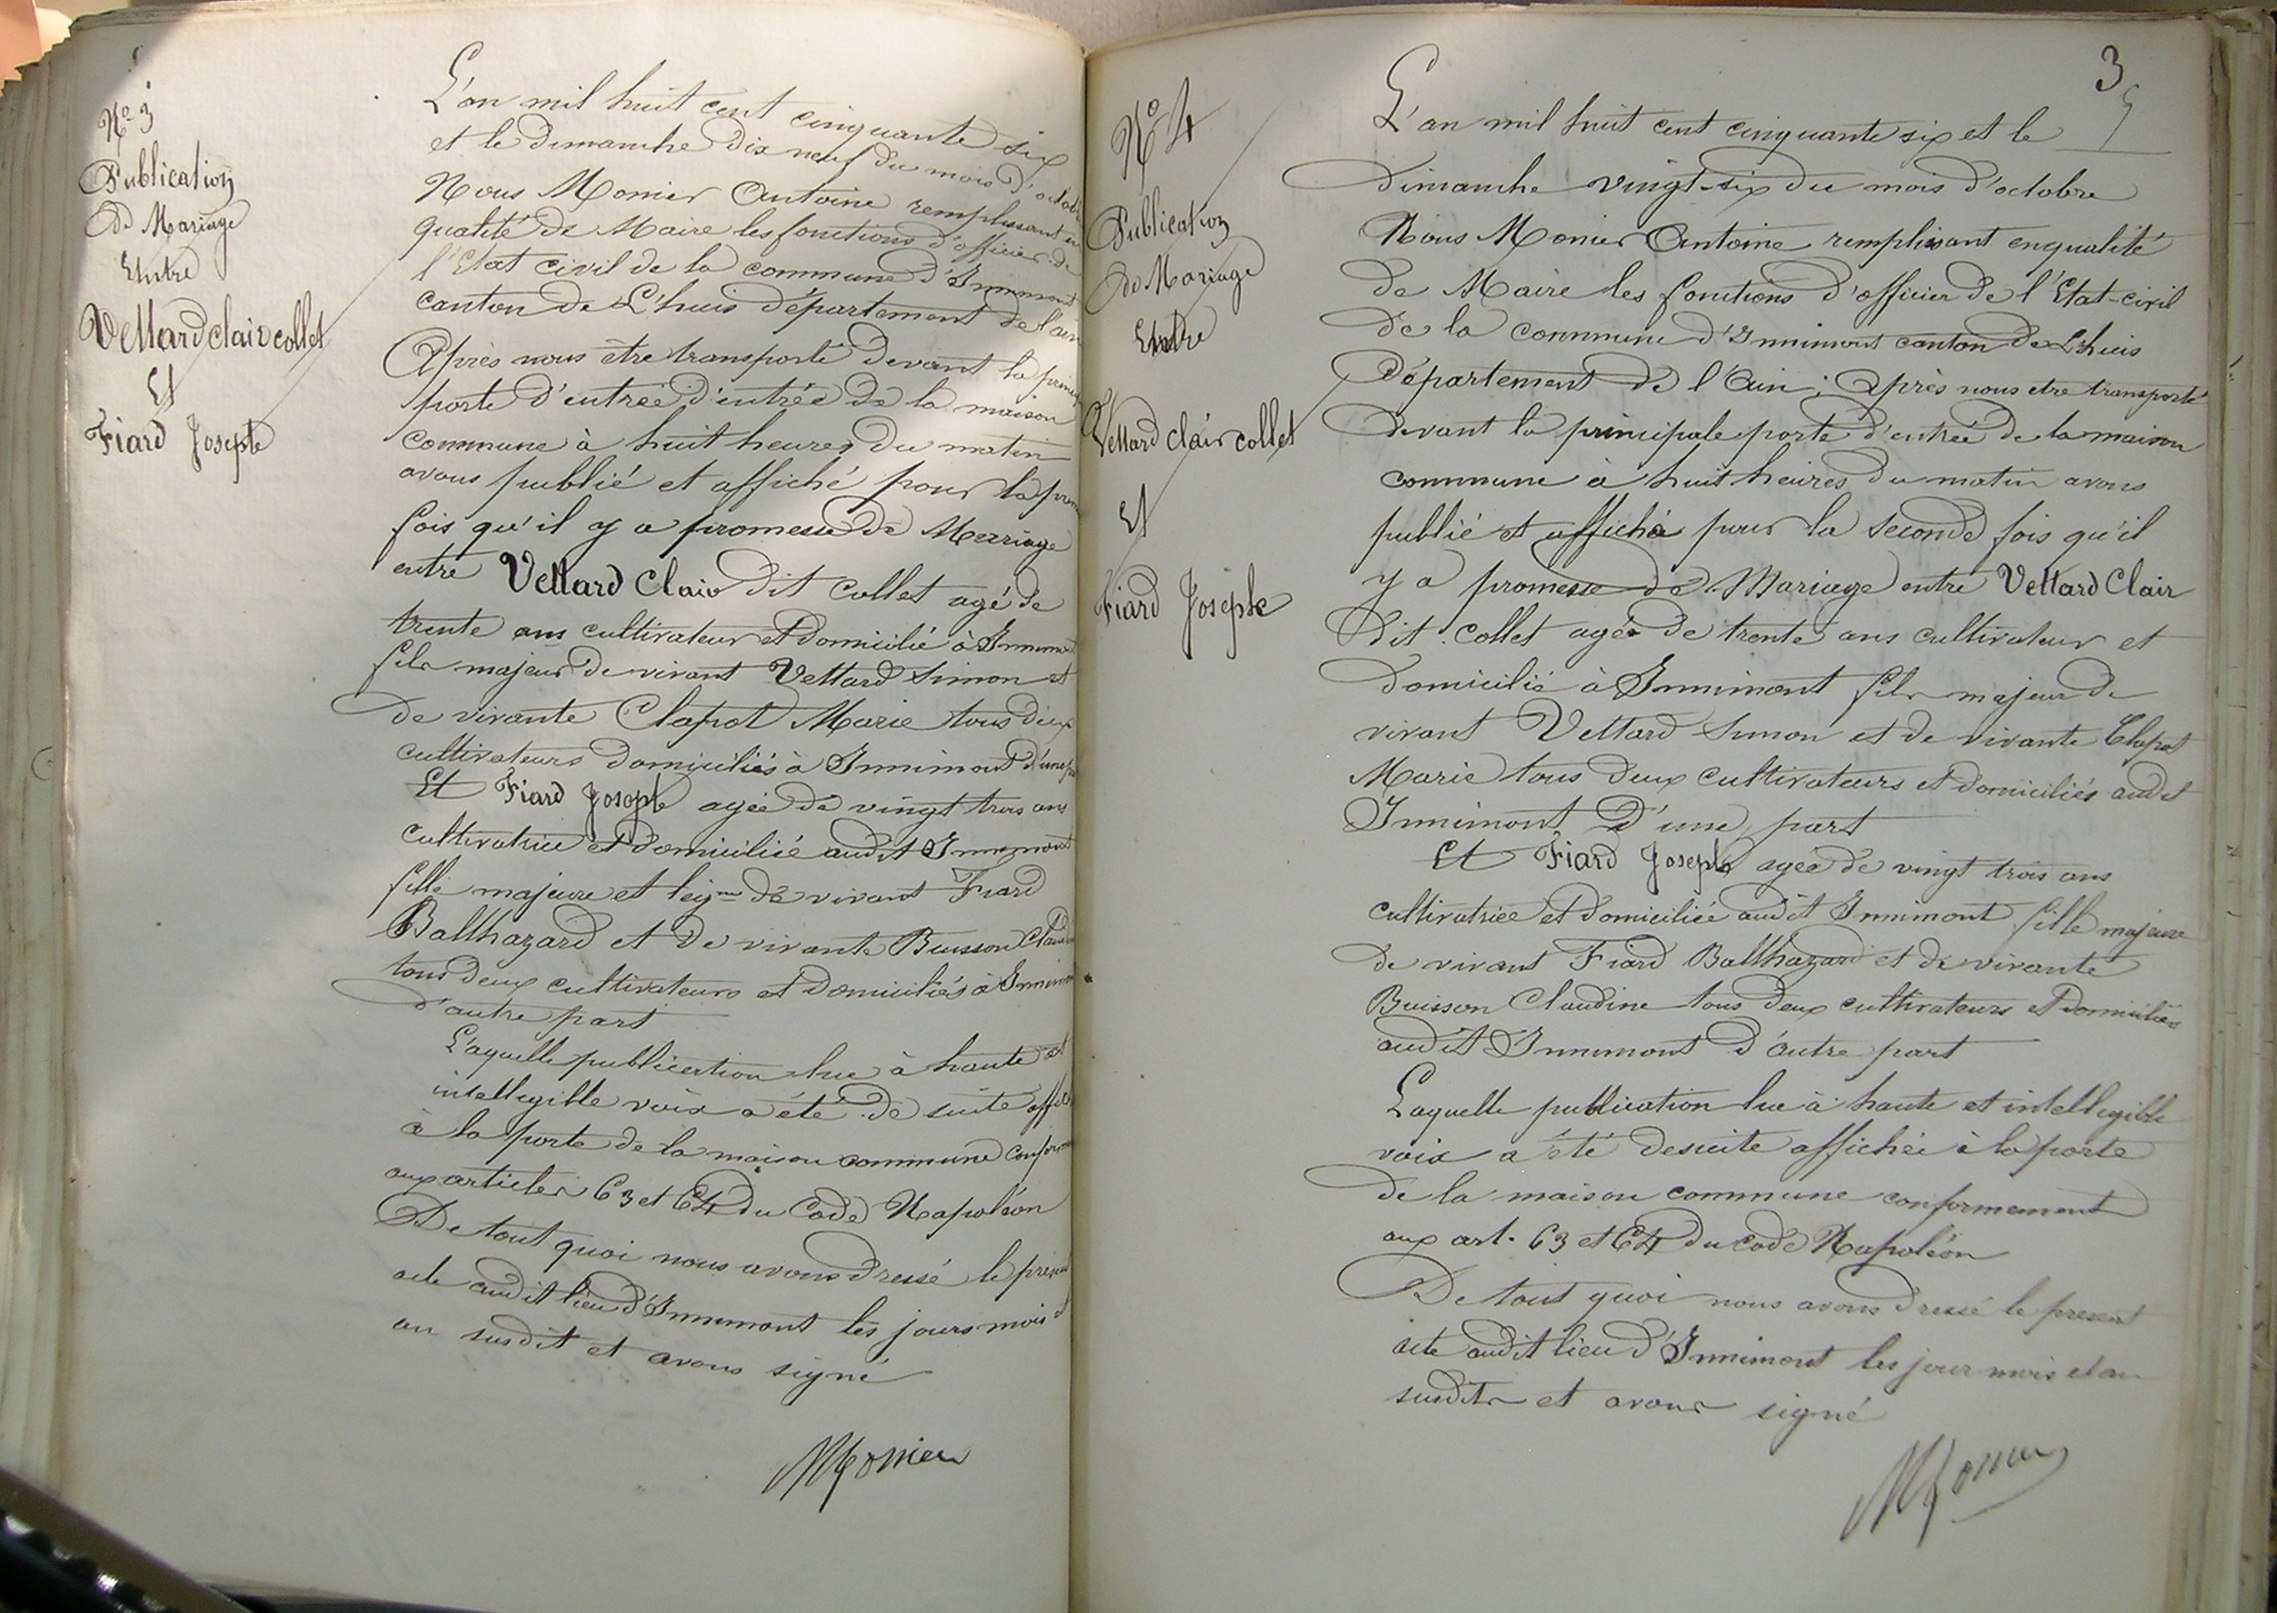 Nº 3
Publication
de Mariage
Entre
Vettard clair collet
Et
Fiard Josephe
L'an mil huit cent cinquante six
et le Dimanche dix neuf du mois d'octobre
Nous Monier Antoine remplissant en
qualité de Maire les fonctions d'officier de
l'Etat civil de la commune d'Innimont
canton de L'huis département de l'ain
Après nous être transporté devant la princip
porte d'entrée d'entrée de la maison
commune à huit heures du matin
avons publié et affiché pour la prem
fois qu'il y a promesse de Mariage
entre Vettard Clair dit Collet agé de
trente ans cultivateur et domicilié à Innimont
fils majeur de vivant Vettard Simon et
de vivante Clapot Marie tous deux
cultivateurs domiciliés à Innimont d'une part
Et Fiard Josephe agée de vingt trois ans
cultivatrice et domiciliée audit Innimont
fille majeure et leigme de vivant Fiard
Balthazard et de vivante Buisson Claudine
tous deux cultivateurs et domiciliés à Innimont
d'autre part
Laquelle publication lue à haute et
intelligible voix a été de suite affiché
à la porte de la maison commune conform
aux articles 63 et 64 du Code Napoléon
De tout quoi nous avons dressé le présent
acte audit lieu d'Innimont les jours mois et
an susdit et avons signé
Monier
3
Nº 4
Publication
de Mariage
Entre
Vettard clair collet
Et
Fiard Josephe
L'an mil huit cent cinquante six et le
Dimanche vingt-six du mois d'octobre
Nous Monier Antoine remplissant en qualité
de Maire les fonctions d'officier de l'Etat-civil
de la commune d'Innimont canton de L'huis
Département de l'Ain ; Après nous etre transporté
devant la principale porte d'entrée de la maison
commune à huit heures du matin avons
publié et affiché pour la seconde fois qu'il
y a promesse de Mariage entre Vettard Clair
Dit Collet agée de trente ans cultivateur et
domicilié à Innimont fils majeur de
vivant Vettard Simon et de vivante Clapot
Marie tous deux cultivateurs et domiciliés audit
Innimont D'une part
Et Fiard Josephe agée de vingt trois ans
cultivatrice et domiciliée audit Innimont fille majeure
de vivant Fiard Balthazard et de vivante
Buisson Claudine tous deux cultivateurs et domiciliés
audit Innimont d'autre part
Laquelle publication lue à haute et intelligible
voix a été desuite affichée à la porte
de la maison commune conformement
aux art. 63 et 64 du Code Napoléon
De tout quoi nous avons dressé le present
acte audit lieu d'Innimont les jour mois et an
susdits et avons signé
Monier